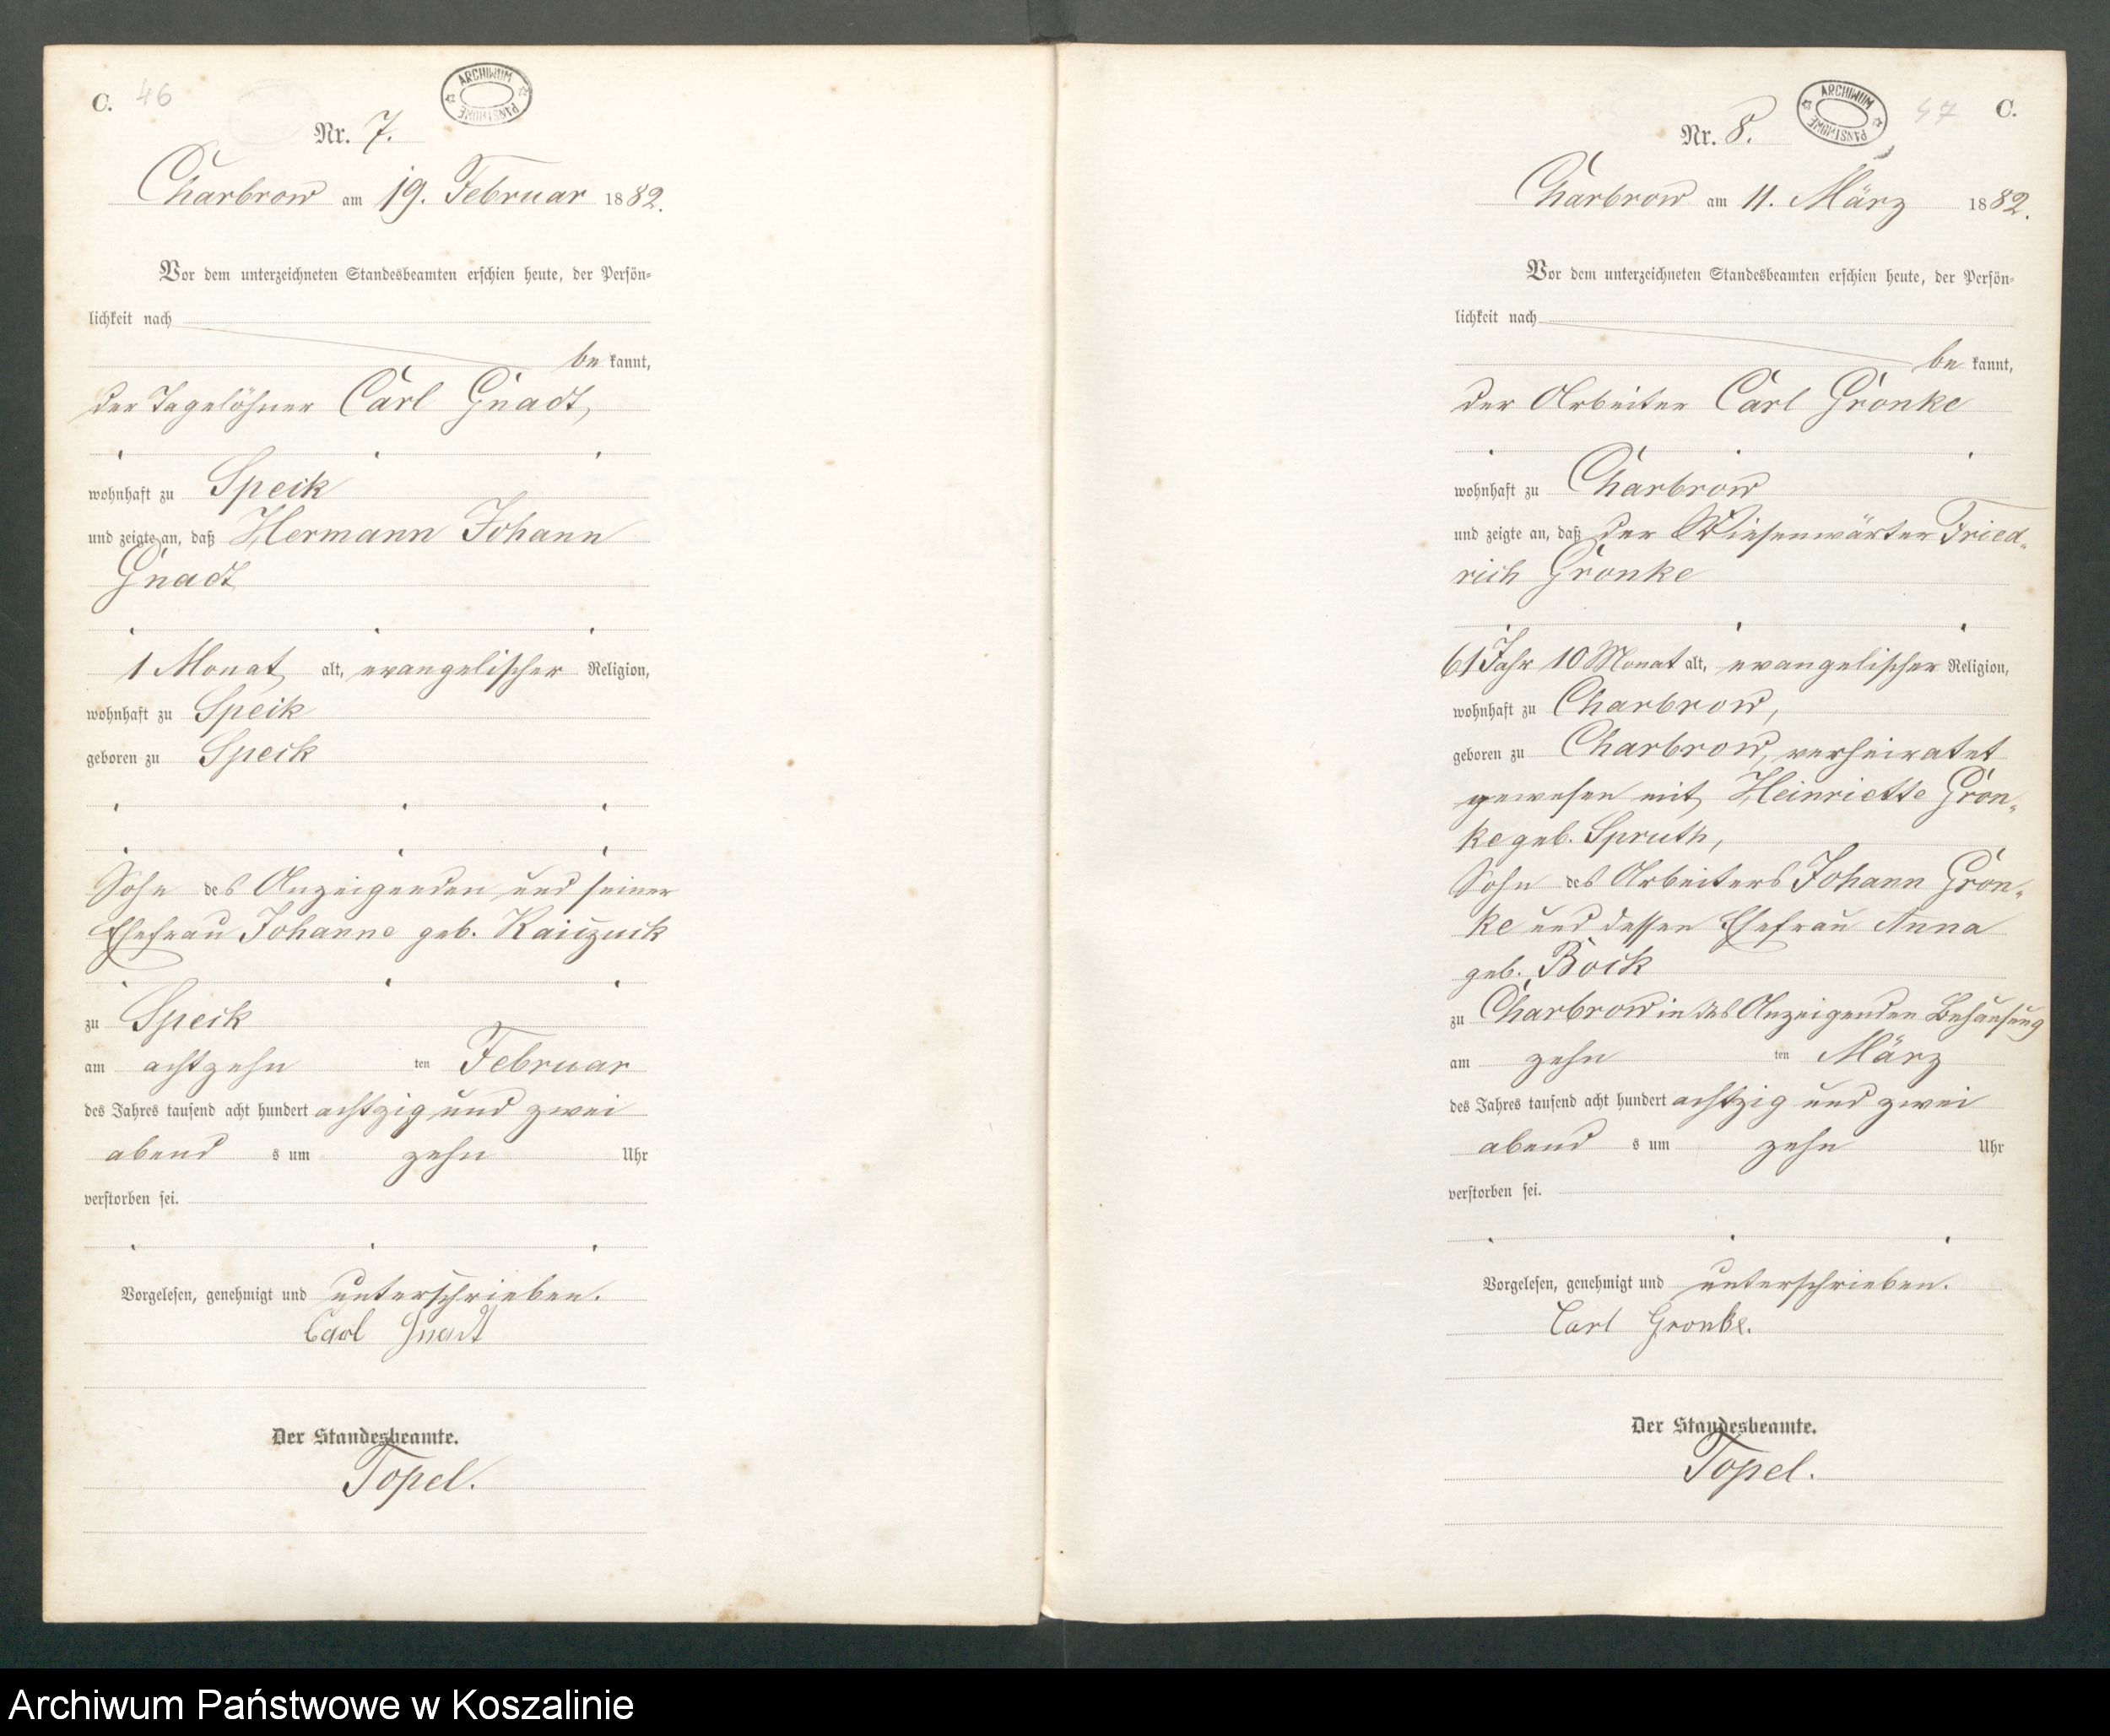 C. 46
ARCHIWUM PAŃSTWOWE
Nr. 7.
Charbrow am 19. Februar 1882.
Vor dem unterzeichneten Standesbeamten erschien heute, der Persön-
lichkeit nach
be kannt,
der Tagelöhner Carl Gnadt,
wohnhaft zu Speck
und zeigte an, daß Hermann Johann
Gnadt
1 Monat alt, evangelischer Religion,
wohnhaft zu Speck
geboren zu Speck
Sohn des Anzeigenden und seiner
Ehefrau Johanne geb.
zu Speck
am achtzehn ten Februar
des Jahres tausend acht hundert achtzig und zwei
abend s um zehn Uhr
verstorben sei.
Vorgelesen, genehmigt und unterschrieben.
Carl Gnadt
Der Standesbeamte.
Topel.
47 C.
ARCHIWUM PAŃSTWOWE
Nr. 8.
Charbrow am 11. März 1882.
Vor dem unterzeichneten Standesbeamten erschien heute, der Persön-
lichkeit nach
be kannt,
der Arbeiter Carl Gronke
wohnhaft zu Charbrow
und zeigte an, daß der Wiesenwärter Fried-
rich Gronke
61 Jahr 10 Monat alt, evangelischer Religion,
wohnhaft zu Charbrow,
geboren zu Charbrow, verheiratet
gewesen mit Heinriette Gron-
ke geb. Spruth,
Sohn des Arbeiters Johann Gron-
ke und dessen Ehefrau Anna
geb. Bock
zu Charbrow in des Anzeigenden Behausung
am zehn ten März
des Jahres tausend acht hundert achtzig und zwei
abend s um zehn Uhr
verstorben sei.
Vorgelesen, genehmigt und unterschrieben.
Carl Gronke.
Der Standesbeamte.
Topel.
Archiwum Państwowe w Koszalinie